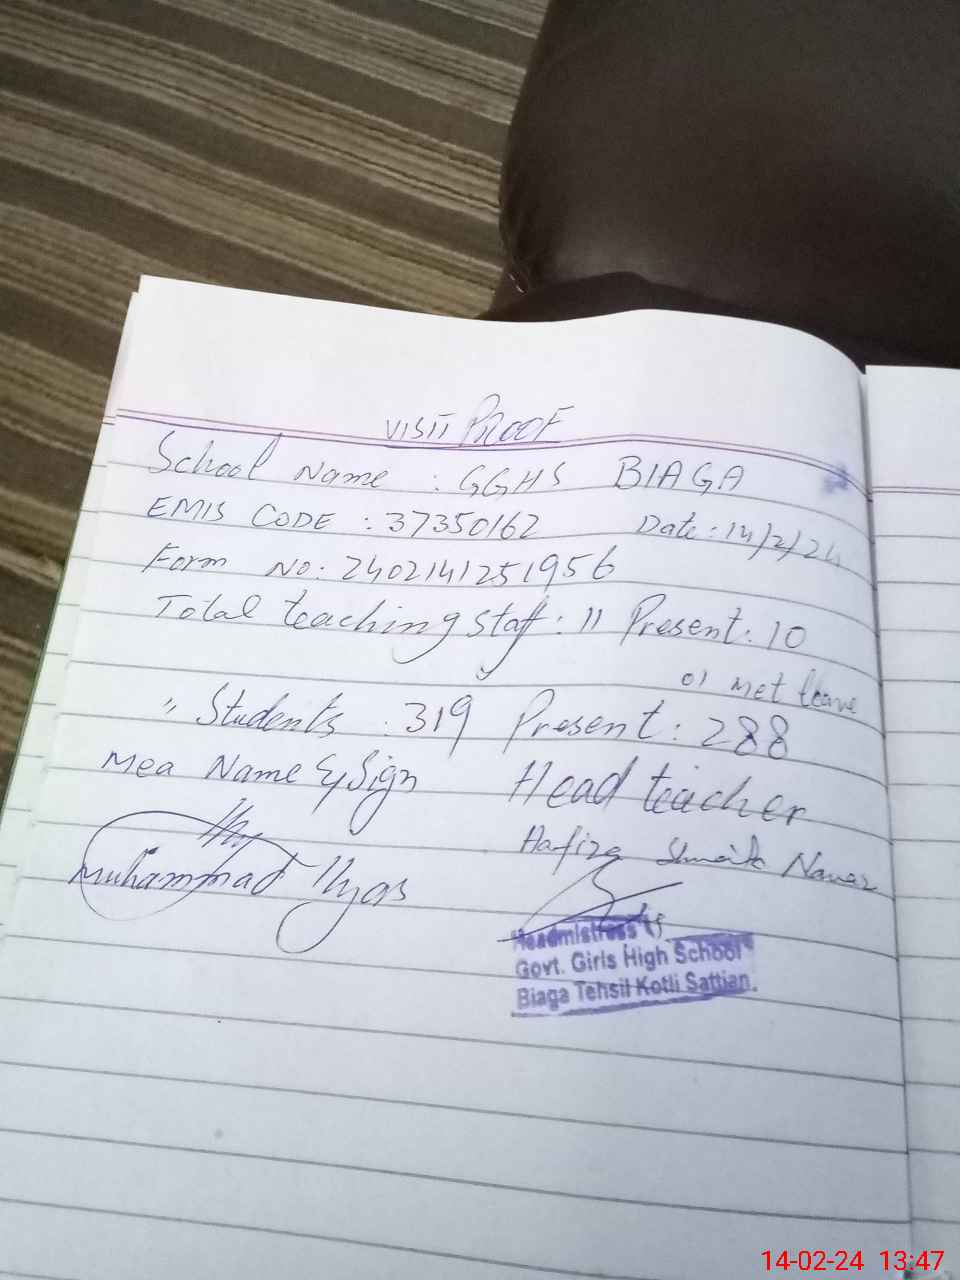 VISIT PROOF
School Name : GGHS BIAGA
EMIS CODE : 37350162 Date : 14/2/24
Form No: 2402141251956
Total teaching staff : 11 Present : 10
01 met leave
" Students : 319 Present : 288
Mea Name & Sign Head teacher
Muhammad Ilyas Hafiza Nawaz
Headmistress
Govt. Girls High School
Biaga Tehsil Kotli Sattian.
14-02-24 13:47